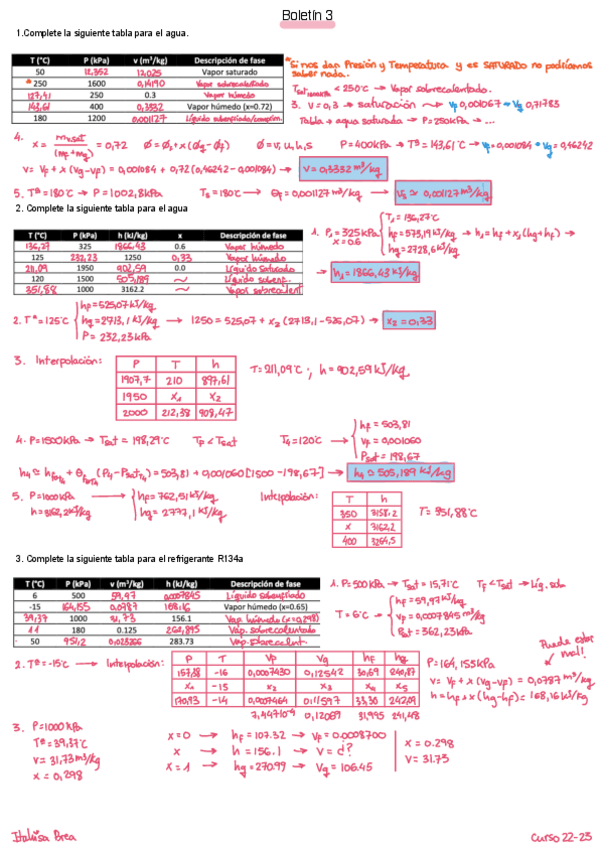 Boletín 3
1.Complete la siguiente tabla para el agua.
T (°C) P (kPa) v (m³/kg) Descripción de fase
50 12,352 12,025 Vapor saturado
* 250 1600 0,14190 Vapor sobrecalentado
127,41 250 0.3 Vapor húmedo
143,61 400 0,3332 Vapor húmedo (x=0.72)
180 1200 0,001127 Líquido subenfriado/comprim.
* Si nos dan Presión y Temperatura y es SATURADO no podríamos saber nada.
Tsat 1600kPa < 250°C → Vapor sobrecalentado.
3. V=0,3 → saturación → Vf 0,001067 → Vg 0,71783
Tabla + agua saturada → P=250kPa → ...
4. x = mv,sat / (mf+mg) = 0,72 Ø=Øf+x(Øg-Øf) Ø=v,u,h,s P=400kPa → Tª=143,61°C → Vf=0,001084 Vg=0,46242
V= Vf + x(Vg-Vf) = 0,001084 + 0,72(0,46242-0,001084) → V=0,3332 m³/kg
5. Tª=180°C → P=1002,8kPa T5=180°C → θf=0,001127 m³/kg → V5 ≈ 0,001127 m³/kg
2. Complete la siguiente tabla para el agua
T (°C) P (kPa) h (kJ/kg) x Descripción de fase
136,27 325 1866,43 0.6 Vapor húmedo
125 232,23 1250 0,33 Vapor húmedo
211,09 1950 902,59 0.0 Líquido saturado
120 1500 505,189 ~ Líquido subenf.
351,88 1000 3162.2 ~ Vapor sobrecalent
1. P1=325kPa x=0.6 T1=136,27°C hf=573,19 kJ/kg hg=2728,6 kJ/kg → h1=hf+x1(hg+hf) →
→ h1=1866,43 kJ/kg
2. Tª=125°C hf=525,07 kJ/kg hg=2713,1 kJ/kg P=232,23 kPa → 1250=525,07+x2(2713,1-525,07) → x2=0,33
3. Interpolación:
P T h
1907,7 210 897,61
1950 x1 x2
2000 212,38 908,47
T=211,09°C ; h=902,59 kJ/kg
4. P=1500kPa → Tsat=198,29°C TP<Tsat T4=120°C → hf=503,81 Vf=0,001060 Psat=198,67
h4 ≈ hf@T4 + θf@T4 (P4-Psat T4)=503,81+0,001060[1500-198,67] → h4 ≈ 505,189 kJ/kg
5. P=1000kPa h=3162,2 kJ/kg → hf=762,51 kJ/kg hg=2777,1 kJ/kg Interpolación:
T h
350 3158,2
x 3162,2
400 3264,5
T=351,88°C
3. Complete la siguiente tabla para el refrigerante R134a
T (°C) P (kPa) v (m³/kg) h (kJ/kg) Descripción de fase
6 500 59,97 0,0007845 Líquido subenfriado
-15 164,155 0,0787 168,16 Vapor húmedo (x=0.65)
39,37 1000 31,73 156.1 Vap. húmedo (x=0.298)
11 180 0.125 262,895 Vap. sobrecalentado
50 951,2 283.73 Vap. sobrecalent.
1. P=500kPa → Tsat=15,71°C TF<Tsat → Líq. sub
T=6°C → hf=59,97 kJ/kg Vf=0,0007845 m³/kg Psat=362,23 kPa
Puede estar mal!
2. Tª=-15°C → Interpolación:
P T Vf Vg hf hg
157,38 -16 0,0007430 0,12542 30,69 240,87
x1 -15 x2 x3 x4 x5
170,93 -14 0,0007464 0,11597 33,30 242,09
7,447·10⁻⁴ 0,12069 31,995 241,48
P=164,155 kPa
V= Vf + x(Vg-Vf) = 0,0787 m³/kg
h=hf+x(hg-hf)=168,16 kJ/kg
3. P=1000 kPa
Tª=39,37°C
V=31,73 m³/kg
x=0,298
x=0 → hf=107.32 → Vf=0.0008700
x → h=156.1 → V=d?
x=1 → hg=270.99 → Vg=106.45
x=0.298
V=31.73
Brea
Curso 22-23